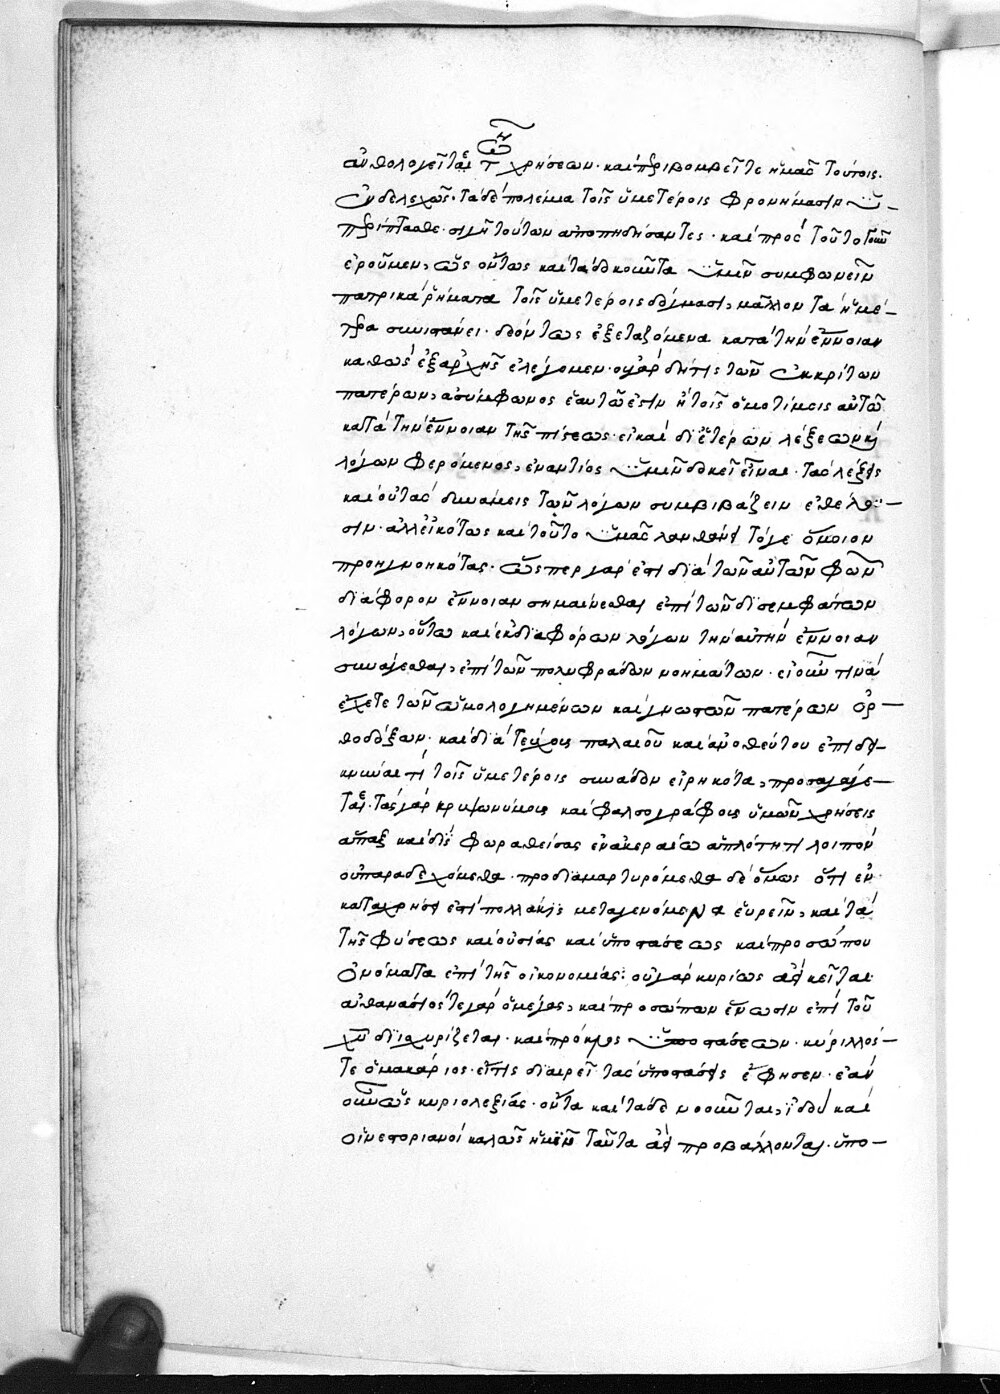 ἀνθολογεῖται τ χρήσεων· καὶ περιβομβεῖτε ἡμᾶς τούτοις
ἐνδελεχῶς· τὰ δὲ πολέμια τοῖς ὑμετέροις φρονήμασιν
περιίπτασθε· σιγῇ τούτων ἀποπηδήσαντες· καὶ πρὸς τοῦτο
ἐροῦμεν, ὡς οὕτως καὶ τὰ δοκοῦντα ὑμῖν συμφωνεῖν
πατρικὰ ῥήματα τοῖς ὑμετέροις δόγμασι, μᾶλλον τὰ ἡμέ-
τερα συνιστάνει· δεόντως ἐξεταζόμενα κατὰ τὴν ἔννοιαν
καθὼς ἐξαρχῆς ἐλέγομεν· οὐ γάρ τις τῶν ἐκκρίτων
πατέρων, ἀσύμφωνος ἑαυτῷ ἐστιν ἢ τοῖς ὁμοτίμοις αὐτῷ
κατὰ τὴν ἔννοιαν τῆς πίστεως· εἰ καὶ δι' ἑτέρων λέξεων κ
λόγων φερόμενος, ἐναντίος ὑμῖν δοκεῖ εἶναι· τὰς λέξεις
καὶ οὐ τὰς δυνάμεις τῶν λόγων συμβιβάζειν ἐθέλου-
σιν· ἀλλ' εἰκότως καὶ τοῦτο ὑμᾶς λανθάνει τό γε ὅμοιον
προηγνοηκότας· ὥσπερ γὰρ ἔστι διὰ τῶν αὐτῶν φωνῶν
διάφορον ἔννοιαν σημαίνεσθαι ἐπὶ τῶν δισεμφάτων
λόγων, οὕτω καὶ ἐκ διαφόρων λόγων τὴν αὐτὴν ἔννοιαν
συνάγεσθαι, ἐπὶ τῶν πολυφράδων νοημάτων· εἰ οὖν τινὰ
ἔχετε τῶν ὡμολογημένων καὶ γνωστῶν πατέρων ὀρ-
θοδόξων· καὶ διὰ τεύχους παλαιοῦ καὶ ἀνοθεύτου ἐπιδει-
κνύναι τὶ τοῖς ὑμετέροις συνᾷδον εἰρηκότα, προσαγάγε-
ται· τὰς γὰρ κρυψωνύμοις καὶ φαλσογράφοις ὑμῶν χρήσεις
ἅπαξ καὶ δὶς φωραθείσας ἐν ἀκεραίῳ ἁπλότητι λοιπὸν
οὐ παραδεχόμεθα· προδιαμαρτυρόμεθα δὲ ὅμως ὅτι ἐν
καταχρήσει ἔστι πολλάκις μεταγενόμενα εὑρεῖν, καὶ τὰ
τῆς φύσεως καὶ οὐσίας καὶ ὑποστάσεως καὶ προσώπου
ὀνόματα ἐπὶ τῆς οἰκονομίας· οὐ γὰρ κυρίως ἀεὶ κεῖται·
ἀθανάσιός τε γὰρ ὁ μέγας, καὶ προσώπων ἕνωσιν ἐπὶ τοῦ
χυ διισχυρίζεται· καὶ πρόκλος ὑποστάσεων· κύριλλός-
τε ὁ μακάριος· εἴ τις διαιρεῖ τὰς ὑποστάσεις ἔφησεν· ἐὰν
οὖν ὡς κυριολεξίας· οὕτω καὶ τάδε νοοῦνται, ἰδοὺ καὶ
οἱ νεστοριανοὶ καλῶς ἡμῖν ταῦτα ἀεὶ προβάλλονται· ὑπο-